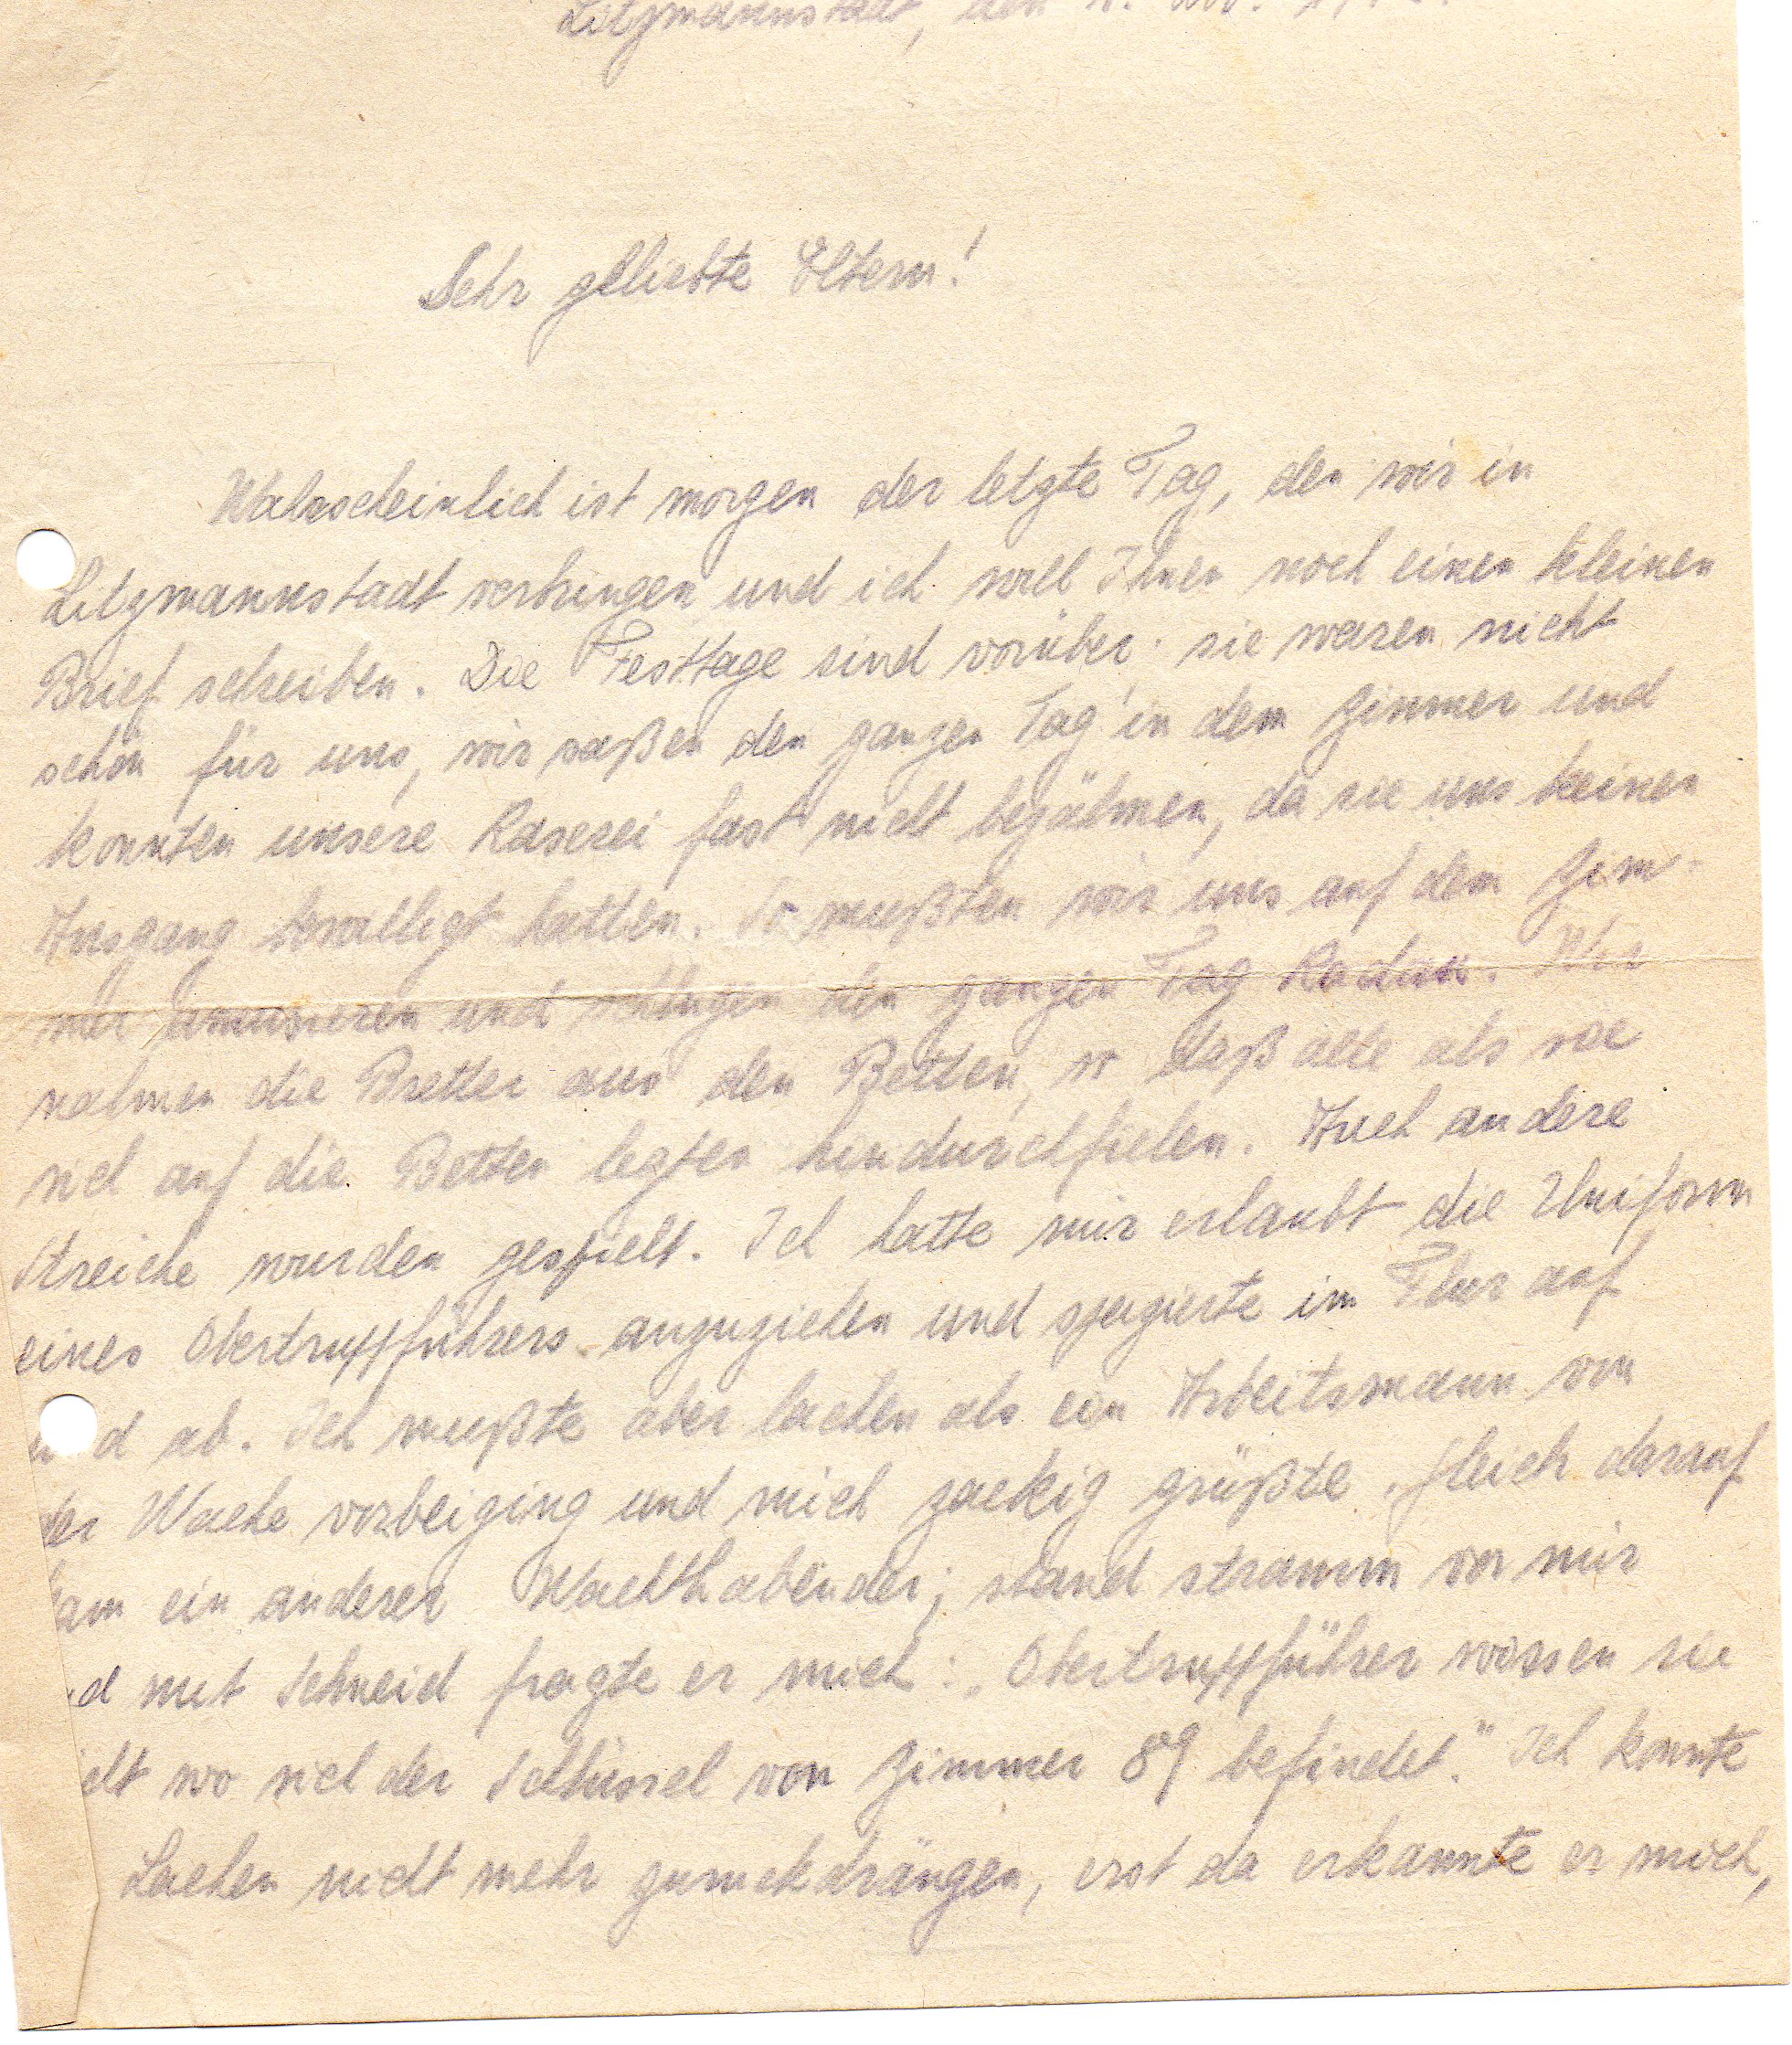 Litzmannstadt, den
Sehr geliebte Eltern!
Wahrscheinlich ist morgen der letzte Tag, den wir in
Litzmannstadt verbringen und ich will Ihnen noch einen kleinen
Brief schreiben. Die Festtage sind vorüber; sie waren nicht
schön für uns, wir saßen den ganzen Tag in dem Zimmer und
konnten unsere Raserei fast nicht bezähmen, da sie uns keinen
Ausgang bewilligt hatten. So mußten wir uns auf dem Zim-
mer amüsieren und schlugen den ganzen Tag Radau. Wir
nahmen die Bretter aus den Betten, so daß alle als sie
sich auf die Betten legten hindurchfielen. Auch andere
Streiche wurden gespielt. Ich hatte mir erlaubt die Uniform
eines Obertruppführers anzuziehen und spazierte im Flur auf
und ab. Ich mußte aber lachen als ein Arbeitsmann von
der Wache vorbeiging und mich zackig grüßte. Gleich darauf
kam ein anderer Wachthabender; stand stramm vor mir
nd mit Schneid fragte er mich: „Obertruppführer wissen sie
icht wo sich der Schlüssel von Zimmer 89 befindet." Ich konnte
Lachen nicht mehr zurückdrängen, erst da erkannte er mich,